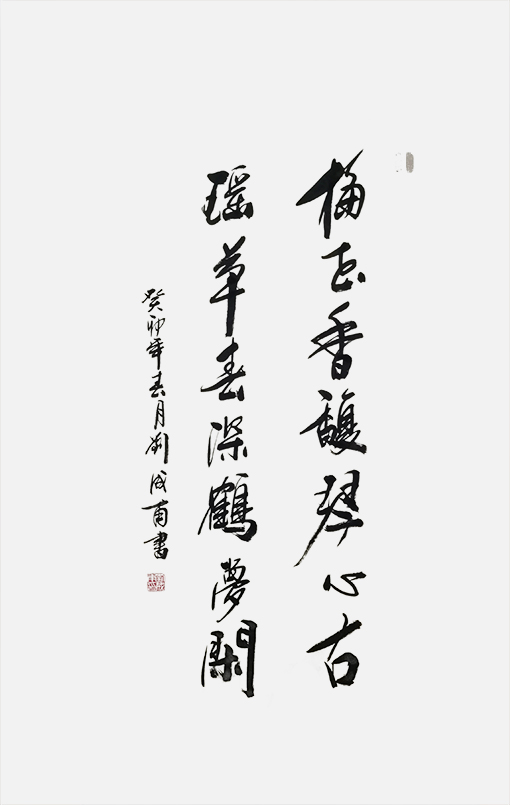 梅花香馥琴心古
瑶草春深鶴夢閑
癸卯年春月劉成甫書